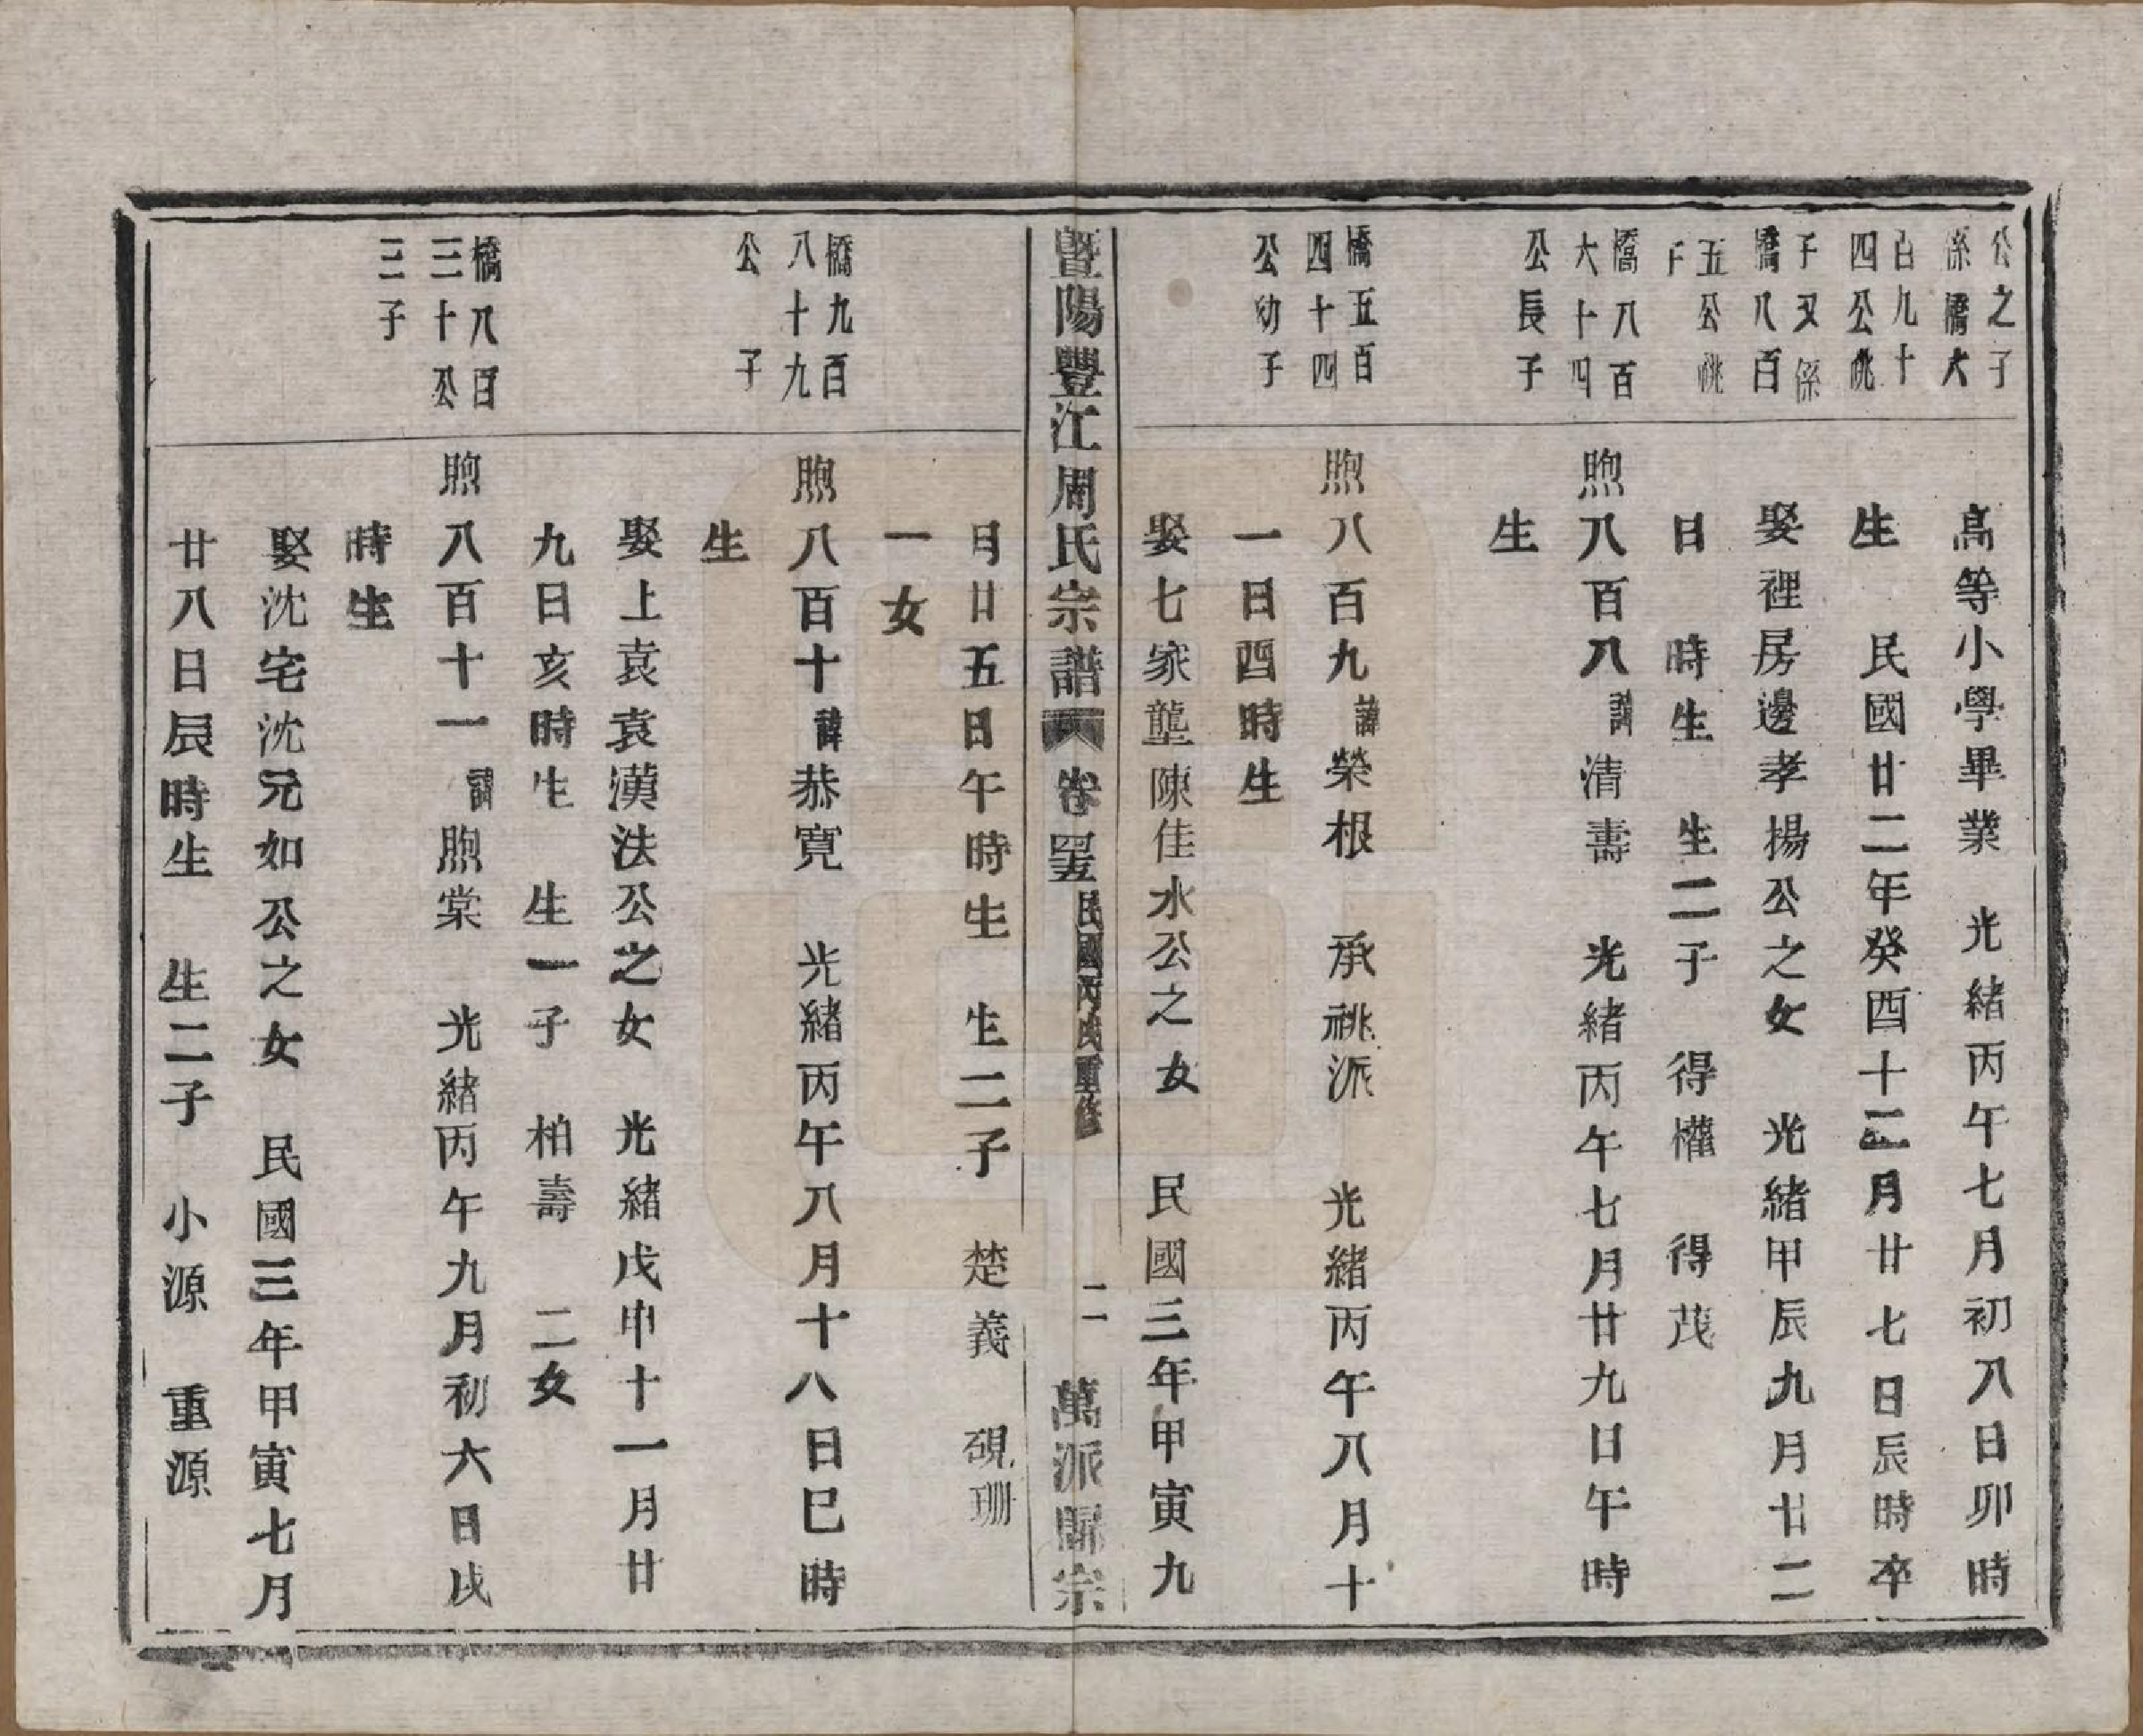 公之子
係橋大
百九十
四公祧
子又係
橋八百
五公祧
子
高等小學畢業 光緒丙午七月初八日卯時
生 民國廿二年癸酉十二月廿七日辰時卒
娶裡房邊孝揚公之女 光緒甲辰九月廿二
日 時生 生二子 得權 得茂
橋八百
六十四
公長子
煦八百八諱清壽 光緒丙午七月廿九日午時
生
橋五百
四十四
公幼子
煦八百九諱榮根 承祧派 光緒丙午八月十
一日酉時生
娶七家壟陳佳水公之女 民國三年甲寅九
暨陽豐江周氏宗譜 卷 民國丙戌重修 二 萬派歸宗
月廿五日午時生 生二子 楚義 硯珊
一女
橋九百
八十九
公 子
煦八百十諱恭寬 光緒丙午八月十八日巳時
生
娶上袁袁漢法公之女 光緒戊申十一月廿
九日亥時生 生一子 柏壽 二女
橋八百
三十公
三子
煦八百十一諱煦棠 光緒丙午九月初六日戌
時生
娶沈宅沈兄如公之女 民國三年甲寅七月
廿八日辰時生 生二子 小源 重源